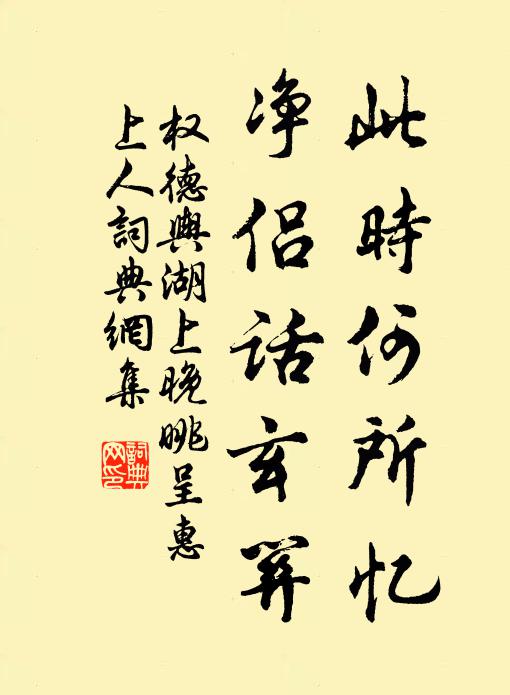 此時何所忆
净侣話玄關
权德輿湖上晚眺呈惠
上人詞典網集
詞典
网印